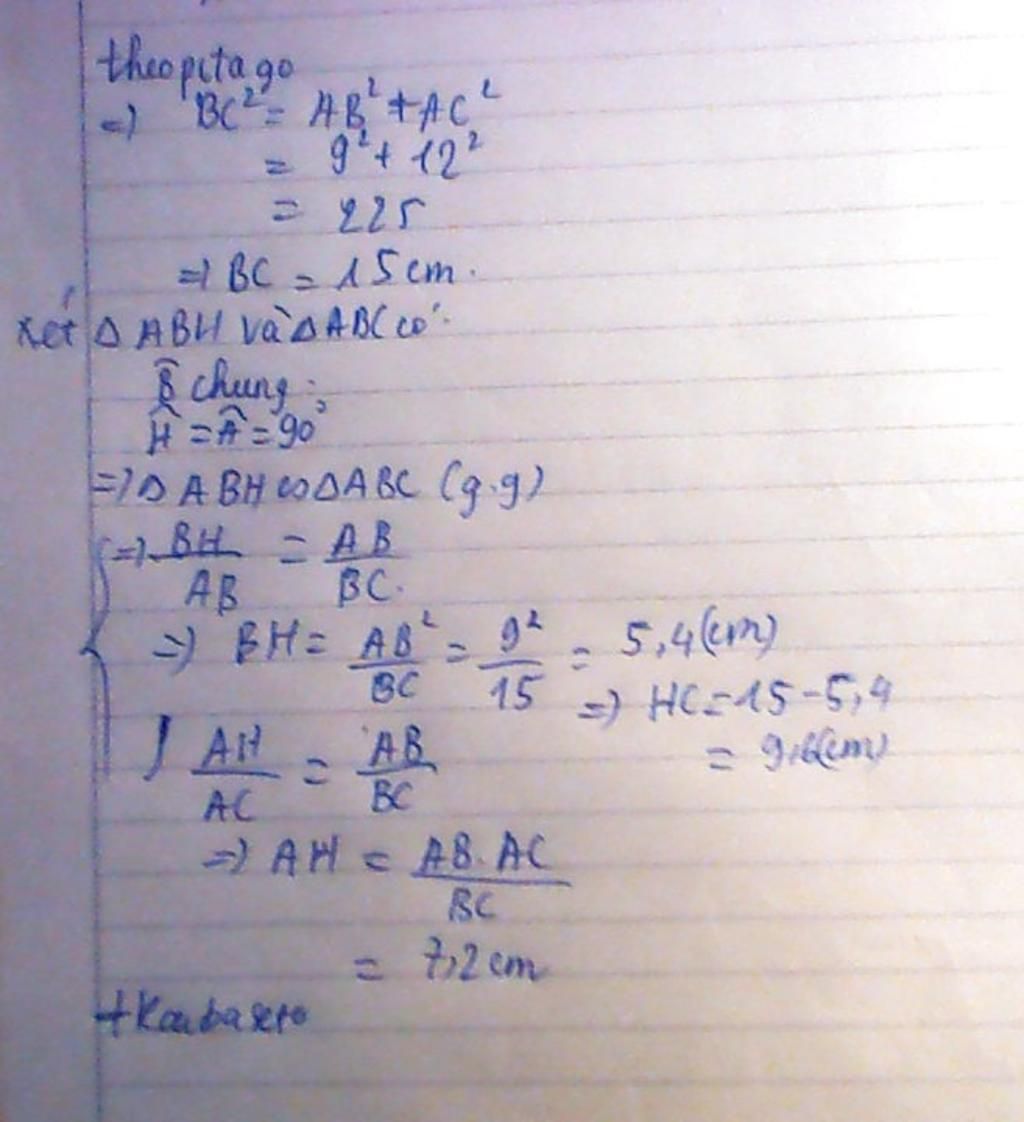 theo pitago
=> BC² = AB² + AC²
= 9² + 12²
= 225
=> BC = 15cm.
Xét Δ ABH và Δ ABC có:
B̂ chung;
Ĥ = Â = 90°
=> Δ ABH ∽ Δ ABC (g.g)
=> BH/AB = AB/BC.
=> BH = AB²/BC = 9²/15 = 5,4(cm)
=> HC = 15 - 5,4
= 9,6(cm)
AH/AC = AB/BC
=> AH = AB.AC/BC
= 7,2 cm